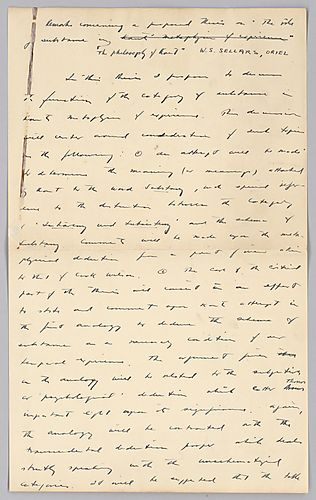 Remarks concerning a proposed Thesis on "The role
of substance in Kant's metaphysics of experience"
"The philosophy of Kant" W.S. SELLARS, ORIEL
In this thesis I propose to discuss
the function of the category of substance in
Kant's metaphysics of experience. This discussion
will center around consideration of such topics
as the following: ① An attempt will be made
to determine the meaning (or meanings) attached
by Kant to the word substance, with special refer-
ence to the distinction between the category
"and the schema of
substance. Comments will be made upon the meta-
physical deduction from a point of view akin
to that of Cook Wilson. ② The core of the critical
part of the thesis will consist in an effort
to state and comment upon Kant's attempt in
the first analogy to deduce the schema of
substance as a necessary condition of our
temporal experience. The argument given
in the analogy will be related to the subjective
or 'psychological' deduction which latter throws
important light upon its significance. Again,
the analogy will be contrasted with the
transcendental deduction proper which deals
strictly speaking with the unschematized
categories. It will be suggested that the